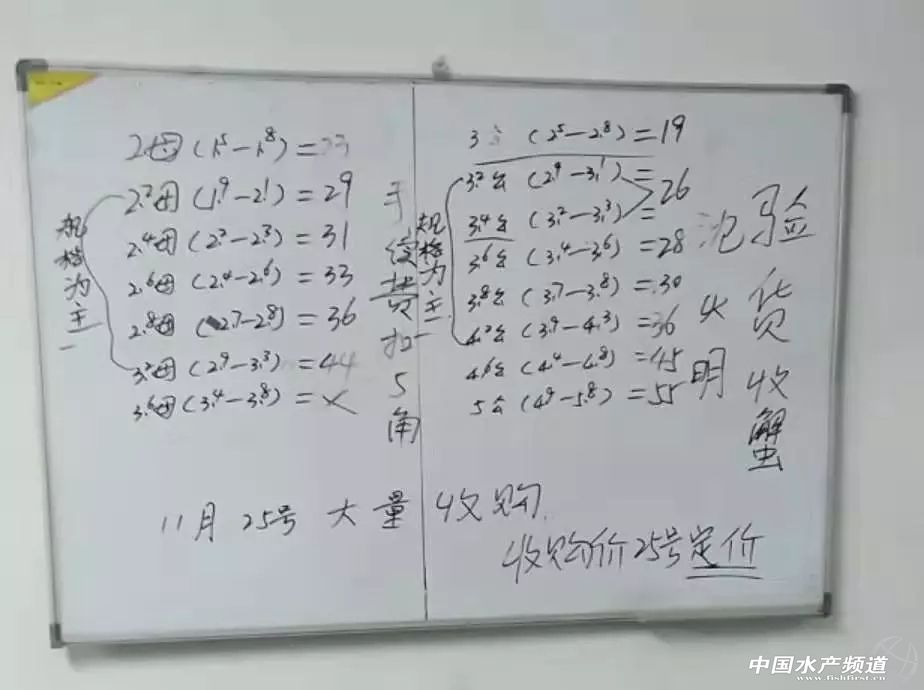 2母(1.5-1.8)=23
2.2母(1.9-2.1)=29
2.4母(2.2-2.3)=31
2.6母(2.4-2.6)=33
2.8母(2.7-2.8)=36
3.2母(2.9-3.3)=44
3.6母(3.4-3.8)=×
规格为主
手续费扣5角
3公(2.5-2.8)=19
3.2公(2.9-3.1)=
26
3.4公(3.2-3.3)=
3.6公(3.4-3.6)=28
3.8公(3.7-3.8)=30
4.2公(3.9-4.3)=36
4.6公(4.4-4.8)=45
5公(4.9-5.8)=55
规格为主
明
验货收蟹
11月25号大量收购.
收购价25号定价
中国水产频道
www.fishfirst.cn